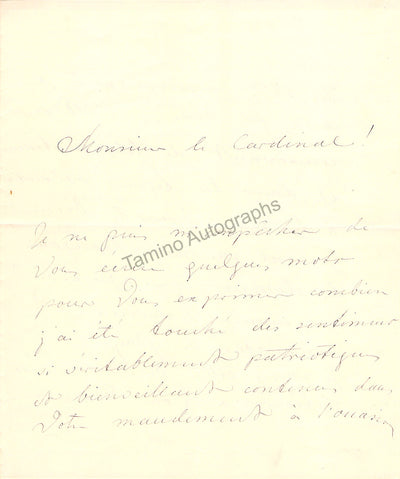 Monsieur le Cardinal!
Tamino Autographs
Je ne puis m'empêcher de
Vous écrire quelques mots
pour Vous exprimer combien
j'ai été touché des sentiments
si véritablement patriotiques
et bienveillants contenus dans
Votre mandement à l'occasion